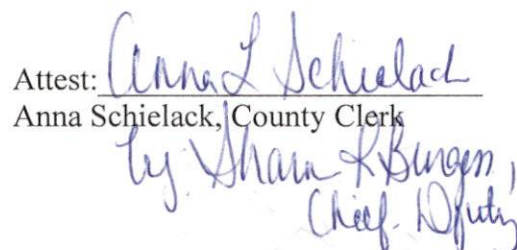 Attest: Anna L Schielack
Anna Schielack, County Clerk
by Sharon R Burgess,
Chief Deputy